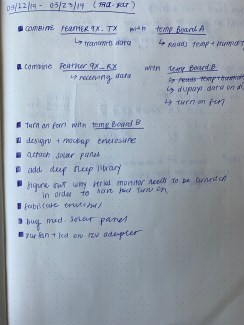 03/22/19 - 03/23/19 (ma-sar)
combine Feather 9x_TX with temp Board A
↳ transmits data ↳ reads temp + humidity
combine Feather 9x_RX with temp Board B
↳ receiving data ↳ reads temp + humidity
↳ display data on
↳ turn on fan
turn on fan with temp Board B
design + mockup enclosure
attach solar panel
add deep sleep library
figure out why serial monitor needs to be turned on
in order to have turn on
fabricate enclosure
bug med. solar panel
put fan + lcd on 12V adapter